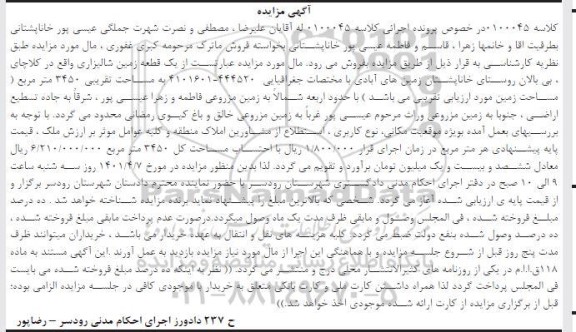 آگهی مزایده
کلاسه ۰۱۰۰۰۴۵در خصوص پرونده اجرائی کلاسه ۰۱۰۰۰۴۵ له آقایان علیرضا ، مصطفی و نصرت شهرت جملگی عیسی پور خاناپشتانی
بطرفیت اقا و خانمها زهرا ، قاسم و فاطمه عیسی پور خاناپشتانی بخواسته فروش ماترک مرحومه کبری غفوری ، مال مورد مزایده طبق
نظریه کارشناسی به قرار ذیل از طریق مزایده بفروش می رود. مال مورد مزایده عبارتست از یک قطعه زمین شالیزاری واقع در کلاچای
، بی بالان روستای خاناپشتان زمین های آبادی با مختصات جغرافیایی ۴۴۴۵۲۰-۴۱۰۱۶۰۱ به مساحت تقریبی ۳۴۵۰ متر مربع (
مساحت زمین مورد ارزیابی تقریبی می باشد ) با حدود اربعه شمالاً به زمین مزروعی فاطمه و زهرا عیسی پور ، شرقاً به جاده تسطیع
اراضی ، جنوبا به زمین مزروعی وراث مرحوم عیسی پور غرباً به زمین مزروعی خالق و باغ کیوی رمضانی محدود می گردد. با توجه به
بررسیهای بعمل آمده بویژه موقعیت مکانی، نوع کاربری ، استطلاع از مشاورین املاک منطقه و کلیه عوامل موثر بر ارزش ملک ، قیمت
پایه پیشنهادی هر متر مربع در زمان اجرای قرار ۱/۸۰۰/۰۰۰ ریال با احتساب مساحت کل ۳۴۵۰ متر مربع ۶/۲۱۰/۰۰۰/۰۰۰ ریال
معادل ششصد و بیست و یک میلیون تومان برآورد و تقویم می گردد. لذا بدین منظور مزایده در مورخ ۱۴۰۱/۴/۷ روز سه شنبه ساعت
۹ الی ۱۰ صبح در دفتر اجرای احکام مدنی دادگستری شهرستان رودسر با حضور نماینده محترم دادستان شهرستان رودسر برگزار و
از قیمت پایه ی ارزیابی شده آغاز می گردد شخصی که بالاترین مبلغ را پیشنهاد نماید برنده مزایده شناخته خواهد شد . ده درصد
مبلغ فروخته شده ، فی المجلس وصول و مابقی ظرف مدت یک ماه وصول میگردد.درصورت عدم پرداخت مابقی مبلغ فروخته شده ،
ده درصد وصول شده بنفع دولت ضبط می گردد کلیه هزینه های نقل و انتقال به عهده خریدار می باشد ، خریداران میتوانند ظرف
مدت پنج روز قبل از شروع جلسه مزایده و با هماهنگی این اجرا از مال مورد نیاز مزایده بازدید به عمل آورند .این آگهی مستند به ماده
۱۱۸ق.ا.ا.م در یکی از روزنامه های کثیرالانتشار محلی درج و منتشر می گردد. (( نظر به اینکه ده درصد مبلغ فروخته شده می بایست
فی المجلس پرداخت گردد لذا همراه داشتن کارت ملی و کارت بانکی متعلق به خریدار با موجودی کافی در جلسه مزایده الزامی بوده؛
قبل از برگزاری مزایده از کارت ارائه شده موجودی اخذ خواهد شد.))
ح ۲۳۷ دادورز اجرای احکام مدنی رودسر – رضاپور